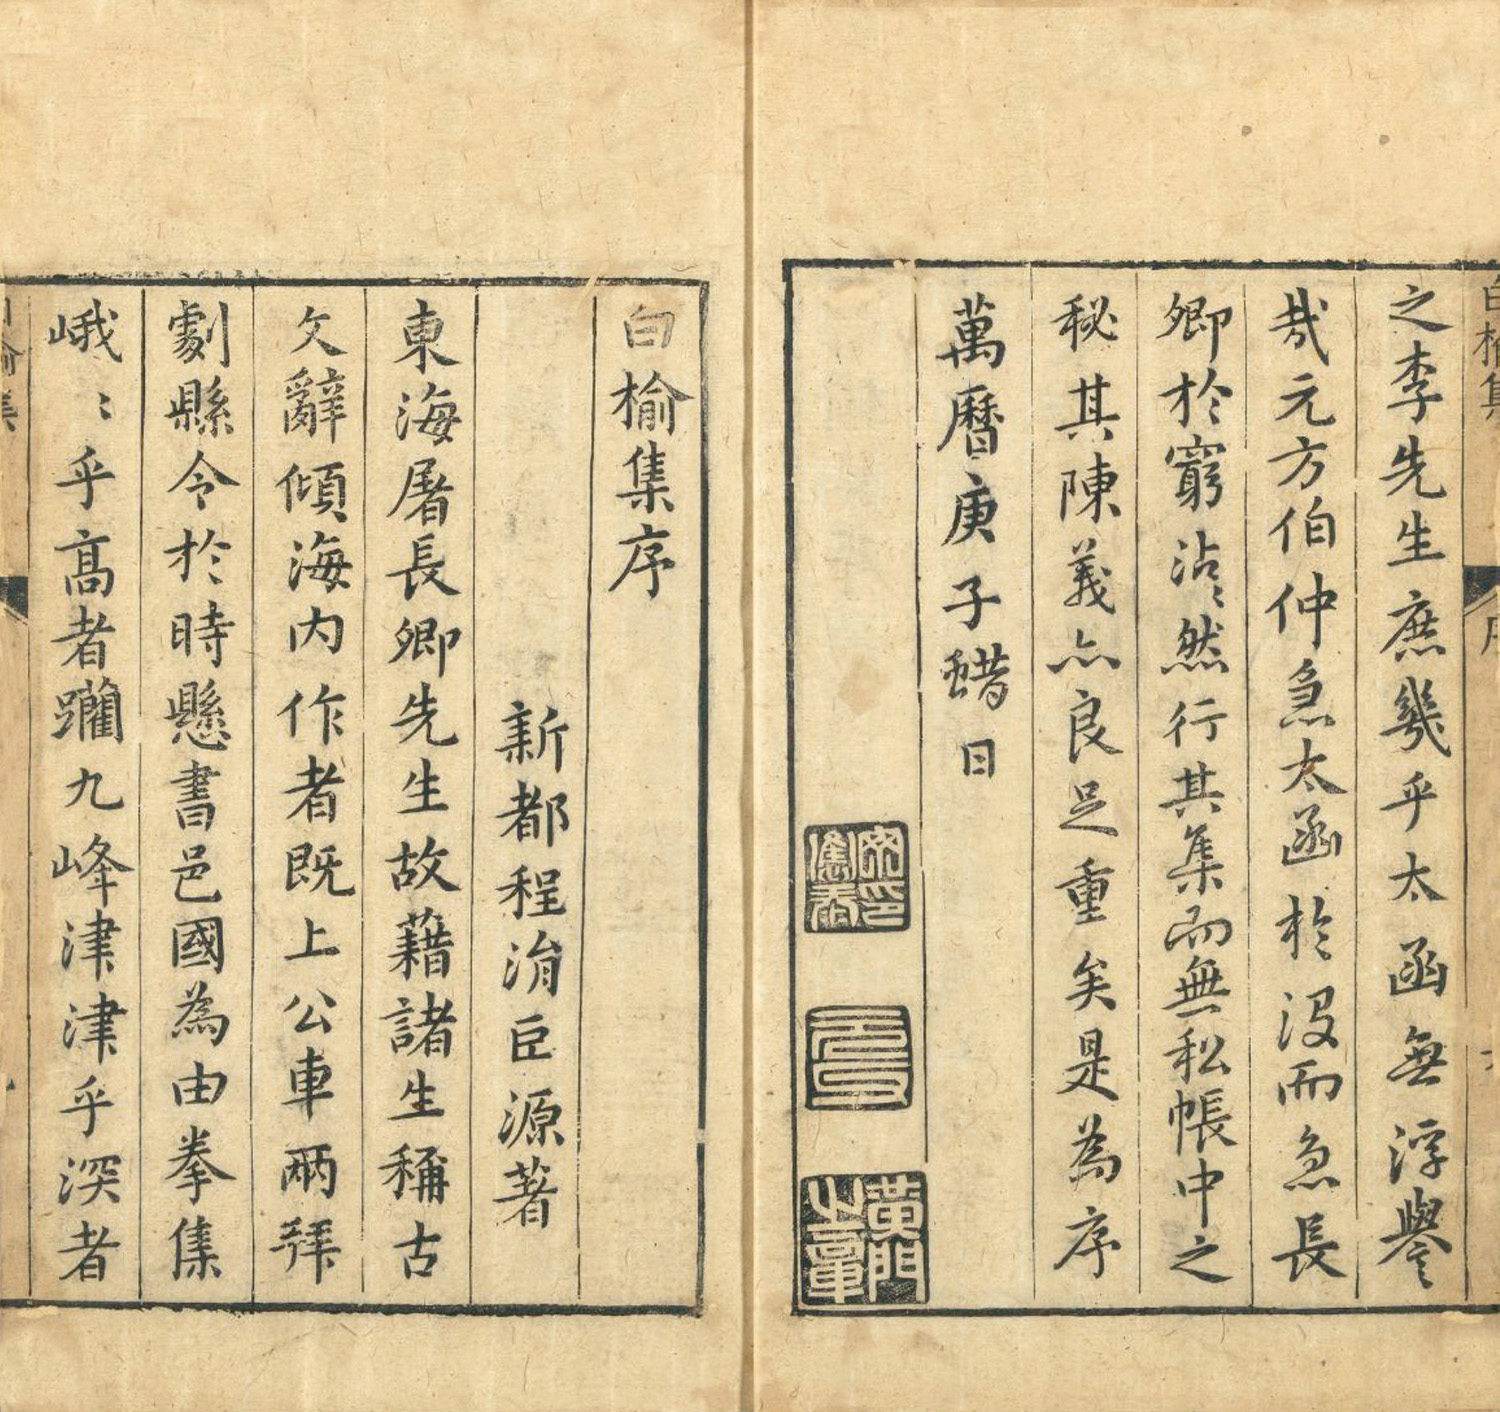 白榆集
序
之李先生庶幾乎太函無浮譽
哉元方伯仲急太函於沒而急長
卿於窮沾沾然行其集而無私帳中之
秘其陳義亦良足重矣是為序
萬曆庚子蜡日
黃門之章
白榆集序
新都程涓巨源著
東海屠長卿先生故藉諸生稱古
文辭傾海內作者既上公車兩拜
劇縣令於時懸書邑國為由拳集
峨〻乎高者躪九峰津津乎深者
白榆集